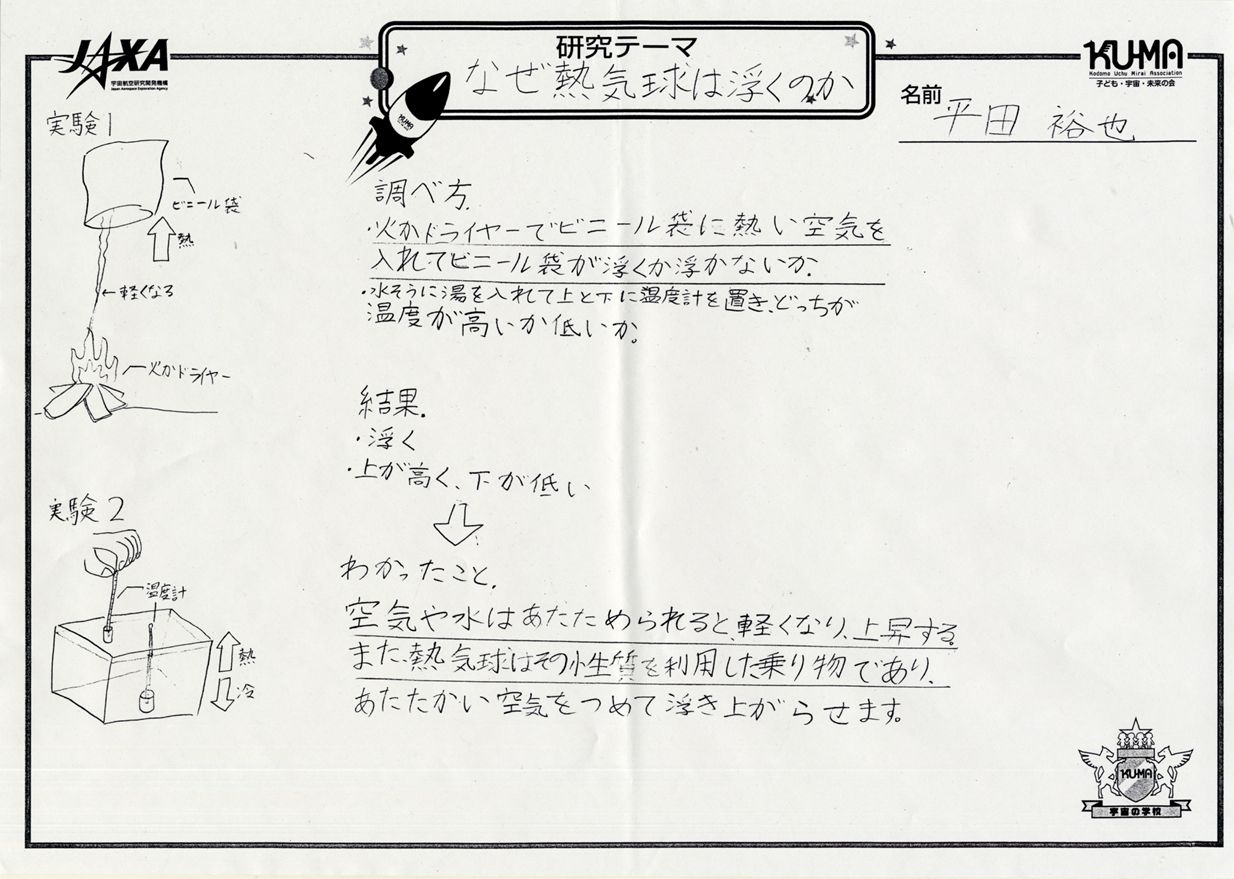 JAXA
宇宙航空研究開発機構
Japan Aerospace Exploration Agency
研究テーマ
なぜ熱気球は浮くのか
KUMA
KUMA
Kodomo Uchu Mirai Association
子ども・宇宙・未来の会
名前
平田 裕也
実験1
ビニール袋
熱
←軽くなる
火かドライヤー
調べ方.
・火かドライヤーでビニール袋に熱い空気を
入れてビニール袋が浮くか浮かないか.
・水そうに湯を入れて上と下に温度計を置き、どっちが
温度が高いか低いか。
結果.
・浮く
・上が高く、下が低い
実験2
温度計
熱
冷
わかったこと.
空気や水はあたためられると、軽くなり、上昇する。
また、熱気球はその小生質を利用した乗り物であり、
あたたかい空気をつめて浮き上がらせます。
KUMA
宇宙の学校